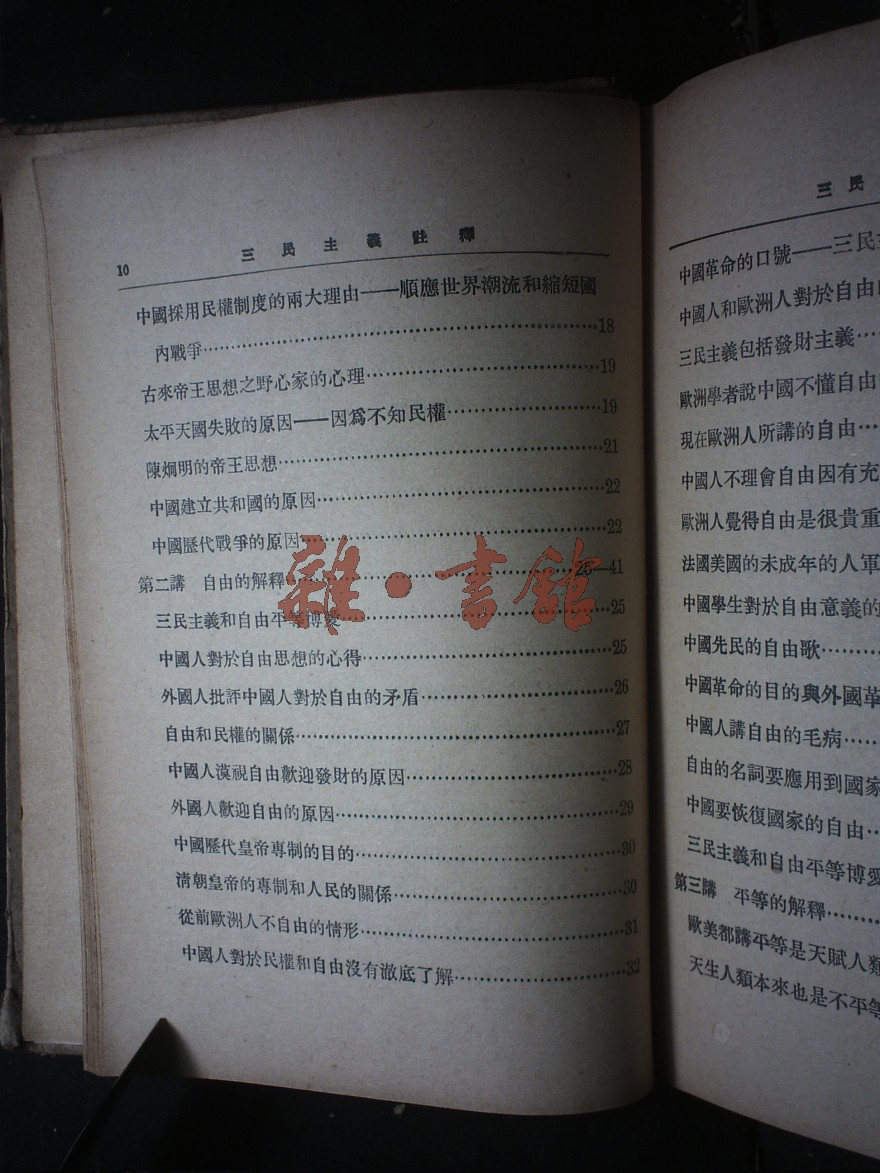 10
三民主義註釋
中國採用民權制度的兩大理由——順應世界潮流和縮短國
內戰爭……18
古來帝王思想之野心家的心理……19
太平天國失敗的原因——因爲不知民權……19
陳炯明的帝王思想……21
中國建立共和國的原因……22
中國歷代戰爭的原因……22
第二講 自由的解釋……25—41
三民主義和自由平等博愛……25
中國人對於自由思想的心得……25
外國人批評中國人對於自由的矛盾……26
自由和民權的關係……27
中國人漠視自由歡迎發財的原因……28
外國人歡迎自由的原因……29
中國歷代皇帝專制的目的……30
清朝皇帝的專制和人民的關係……30
從前歐洲人不自由的情形……31
中國人對於民權和自由沒有澈底了解……32
雜·書館
三民
中國革命的口號——三民
中國人和歐洲人對於自由
三民主義包括發財主義……
歐洲學者說中國不懂自由
現在歐洲人所講的自由…
中國人不理會自由因有充
歐洲人覺得自由是很貴重
法國美國的未成年的人軍
中國學生對於自由意義的
中國先民的自由歌……
中國革命的目的與外國革
中國人講自由的毛病……
自由的名詞要應用到國家
中國要恢復國家的自由…
三民主義和自由平等博愛
第三講 平等的解釋……
歐美都講平等是天賦人類
天生人類本來也是不平等